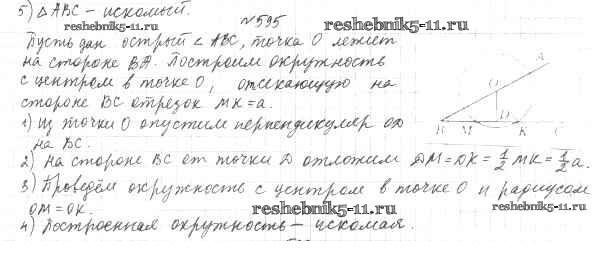 5) △ABC – искомый.
reshebnik5-11.ru
№595
reshebnik5-11.ru
Пусть дан острый ∠ ABC, точка O лежит
на стороне BA. Построим окружность
с центром в точке O, отсекающую на
стороне BC отрезок MK=a.
A
O
B M D K C
1) Из точки O опустим перпендикуляр OD
на BC.
2) На стороне BC от точки D отложим DM=DK=1/2 MK=1/2 a.
3) Проведём окружность с центром в точке O и радиусом
OM=OK.
reshebnik5-11.ru
reshebnik5-11.ru
4) Построенная окружность – искомая.